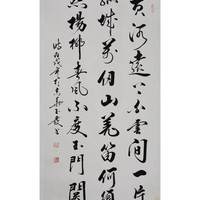 黄河遠上白雲間一片
孤城萬仞山羌笛何須
怨楊柳春風不度玉門關